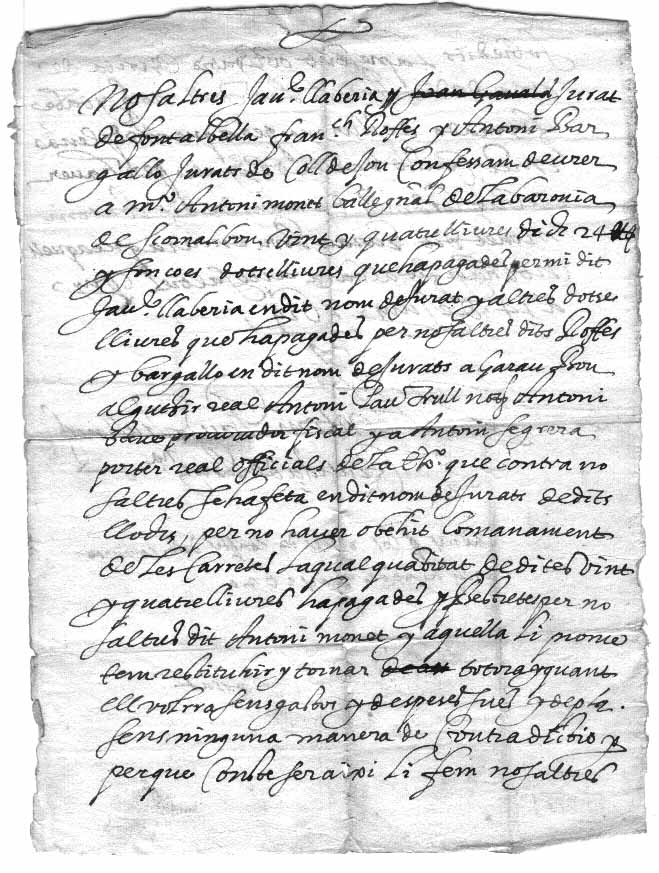 Nosaltres Jau.e llaberia y Joan Gavalda Jurat
de fontalbella fran.ch Rosses y Antoni Bar
gallo Jurats de Colldejou Confessam deurer
a m.r Antoni monet ballegñal de la baronia
de scornalbou vint y quatre lliures dich 24 ll
y son coes dotse lliures que ha pagades per mi dit
Jau.e llaberia en dit nom de Jurat y altres dotse
lliures que ha pagades per nosaltres dits Rosses
y bargallo en dit nom de Jurats a Garau Prou
alguthir real Antoni Pau Trull not Antoni
procurador fiscal y a Antoni segrera
porter real officials de la que contra no
saltres se ha feta en dit nom de Jurats de dits
llochs, per no haver obehit lo manament
de les Carretes laqual quantitat de dites vint
y quatre lliures ha pagades y prestretes per no
saltres dit Antoni monet y aquella li prome
tem restituhir y tornar de a tothora y quant
ell volrra sens gastos y despeses sues y de pla.
sens ninguna manera de Contradictio y
perque Conste ser aixi li fem nosaltres